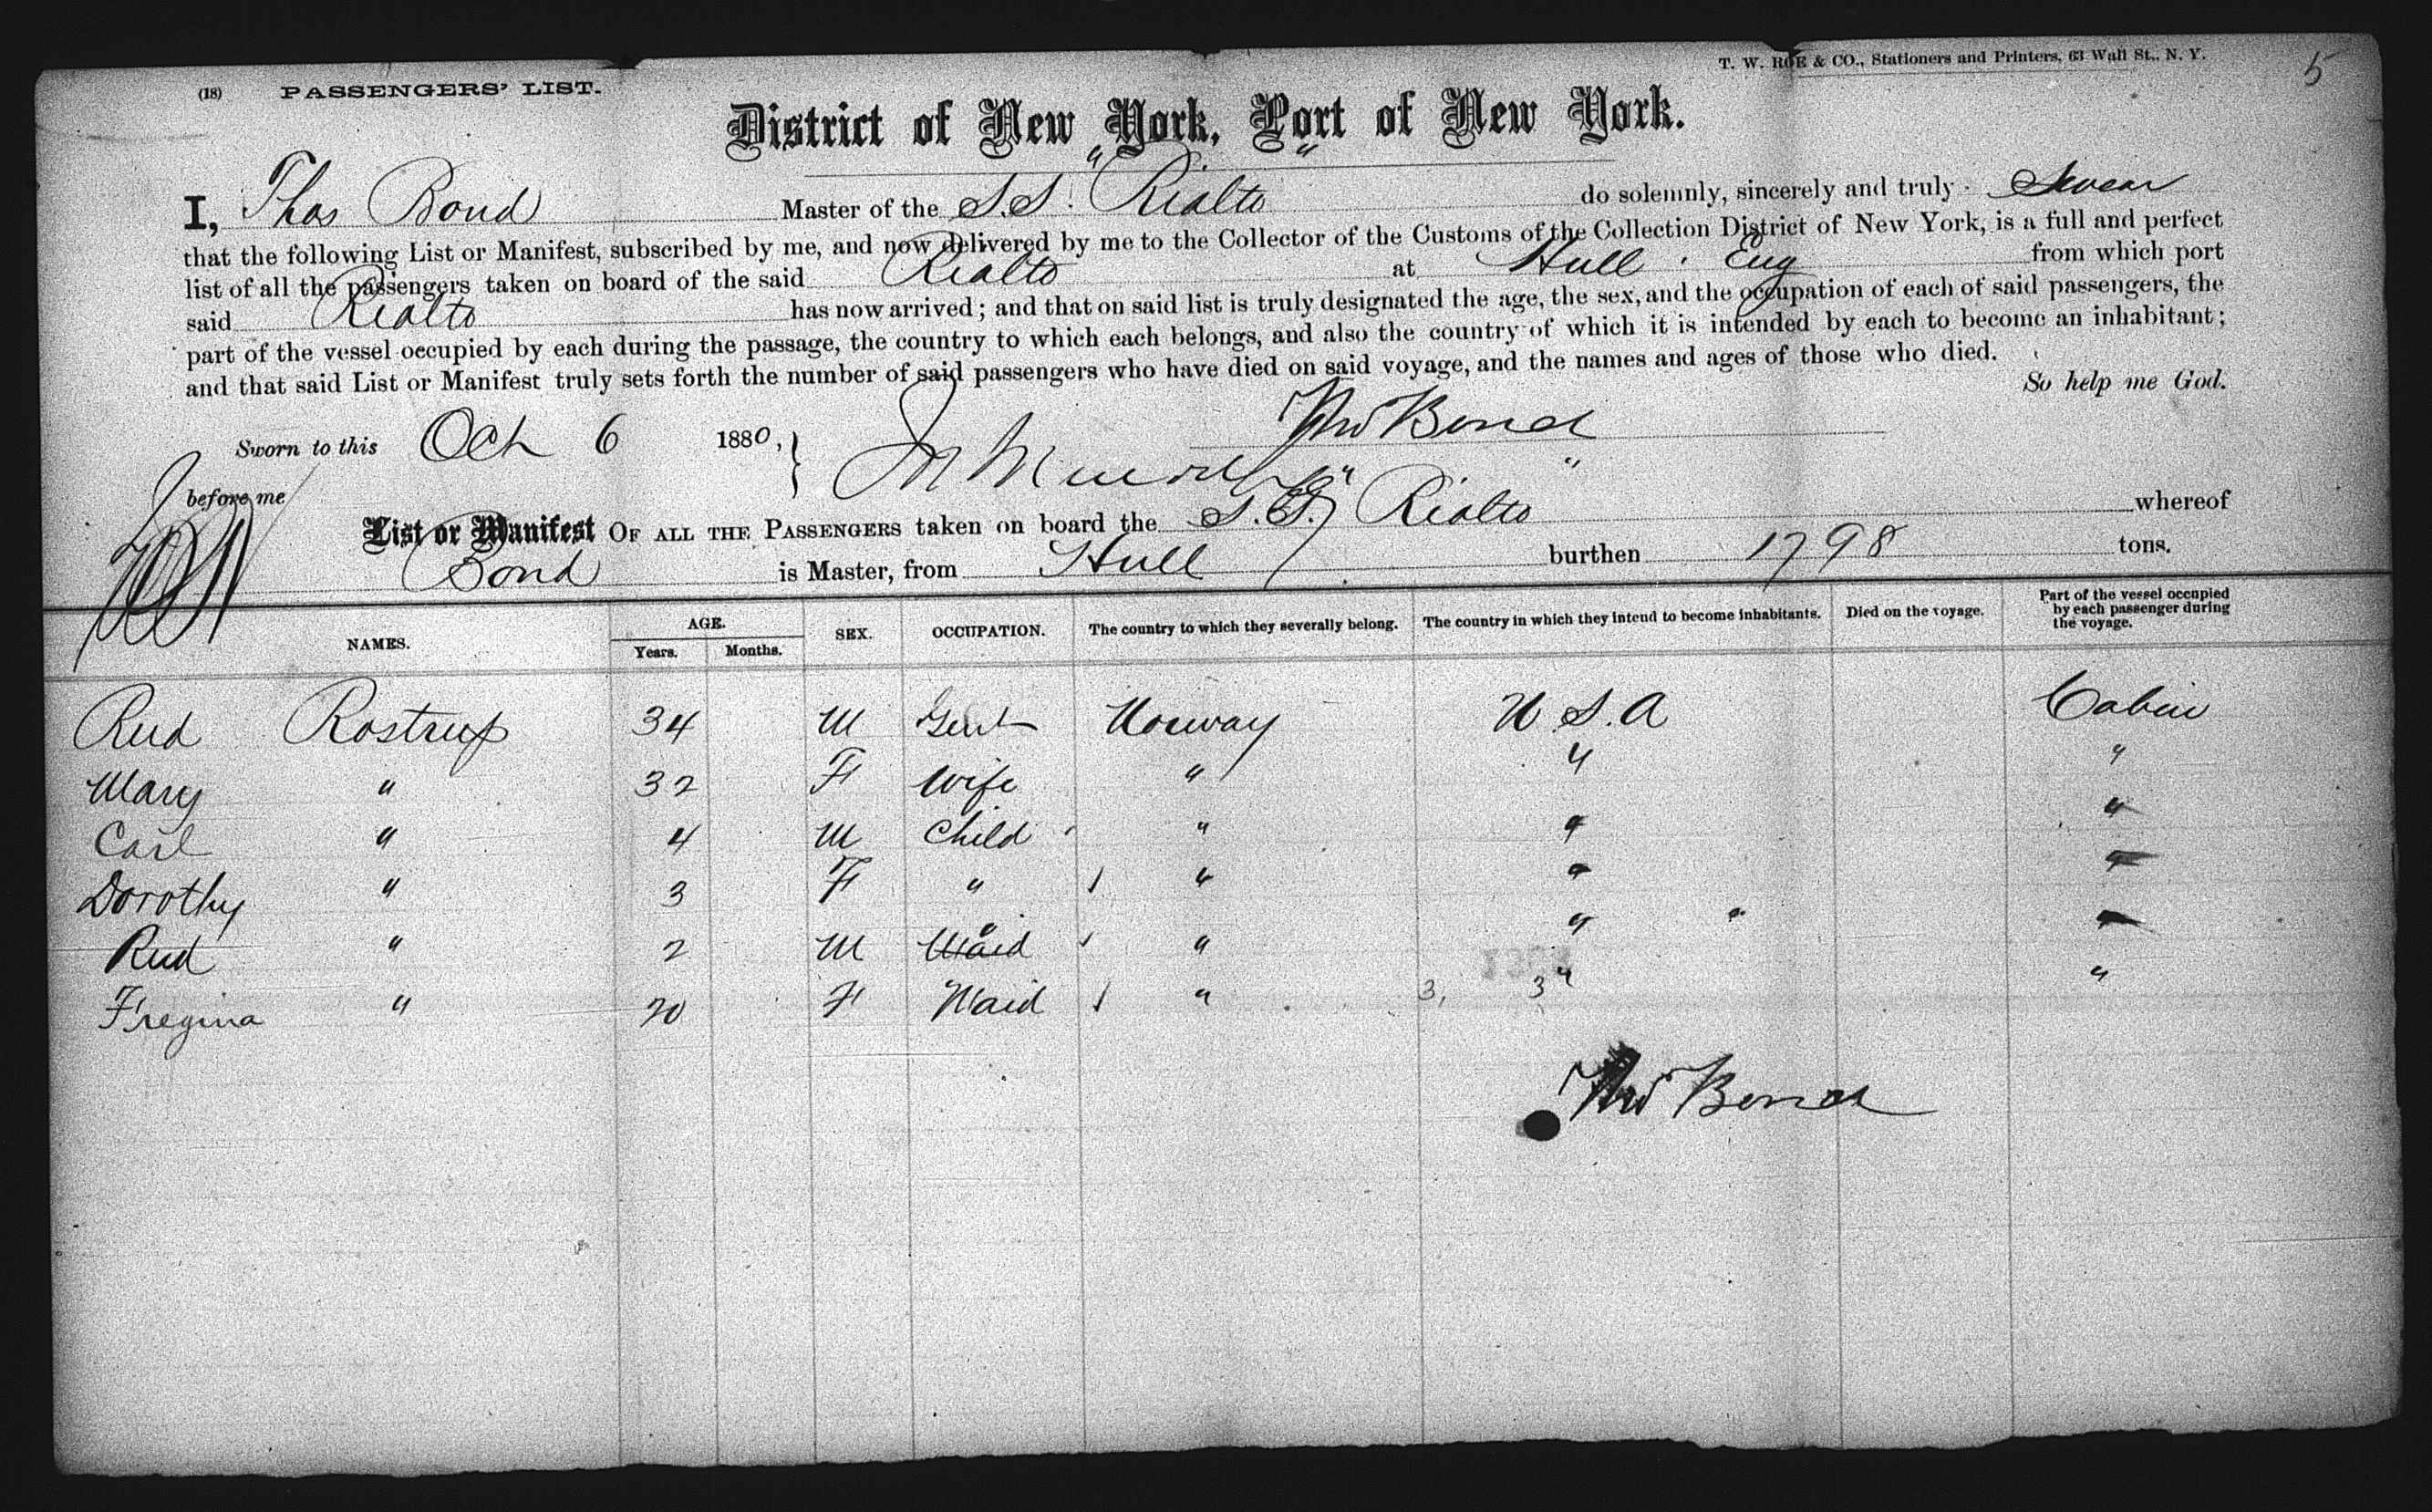 T. W. ROE & CO., Stationers and Printers, 63 Wall St., N. Y.
5
(18) PASSENGERS' LIST.
District of New York, Port of New York.
I, Thos Bond Master of the S.S. "Rialto" do solemnly, sincerely and truly Swear
that the following List or Manifest, subscribed by me, and now delivered by me to the Collector of the Customs of the Collection District of New York, is a full and perfect
list of all the passengers taken on board of the said Rialto at Hull. Eng from which port
said Rialto has now arrived; and that on said list is truly designated the age, the sex, and the occupation of each of said passengers, the
part of the vessel occupied by each during the passage, the country to which each belongs, and also the country of which it is intended by each to become an inhabitant;
and that said List or Manifest truly sets forth the number of said passengers who have died on said voyage, and the names and ages of those who died.
So help me God.
Sworn to this Oct 6 1880, Thos Bond
before me
List or Manifest OF ALL THE PASSENGERS taken on board the S.S. "Rialto" whereof
Bond is Master, from Hull burthen 1798 tons.
NAMES. AGE. Years. Months. SEX. OCCUPATION. The country to which they severally belong. The country in which they intend to become inhabitants. Died on the voyage. Part of the vessel occupied by each passenger during the voyage.
Rud Rostrup 34 M Gent Norway U.S.A Cabin
Mary " 32 F Wife " " "
Carl " 4 M Child " " "
Dorothy " 3 F " " " "
Rud " 2 M Maid " " " "
Fregina " 20 F Maid " 3, 3 " "
Thos Bond